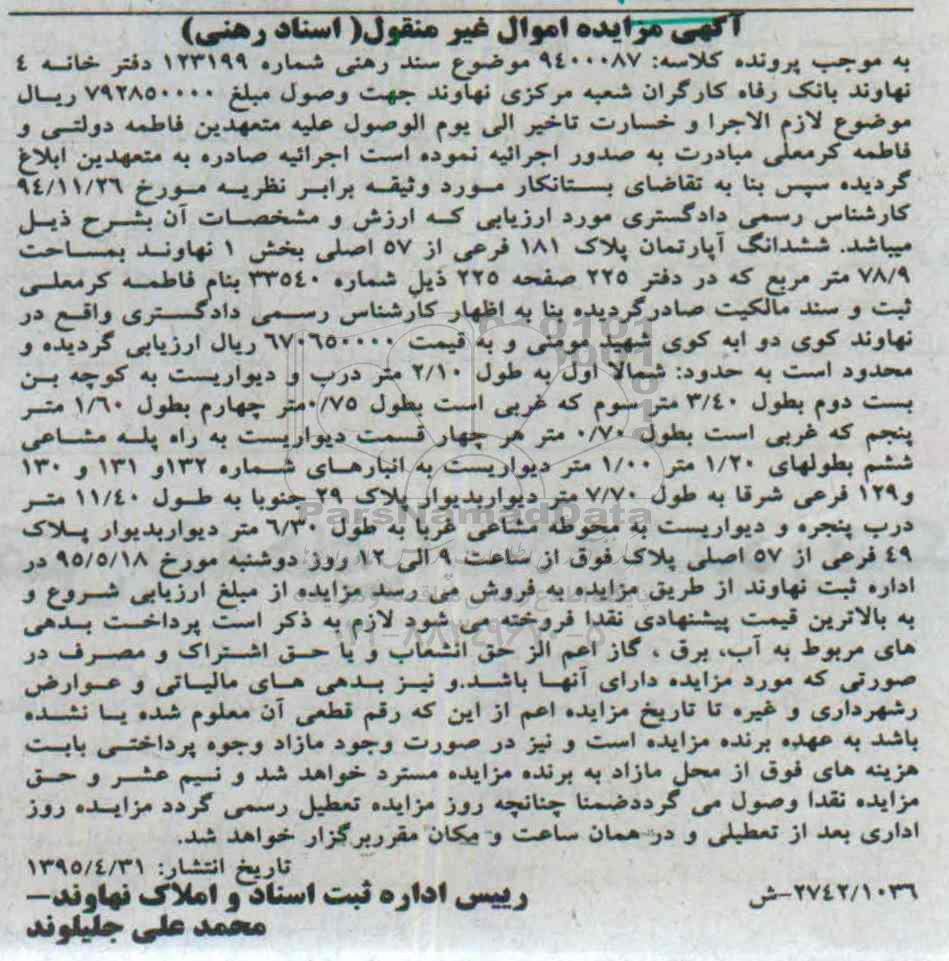 آگهی مزایده اموال غیر منقول( اسناد رهنی)
به موجب پرونده کلاسه: ۹۴۰۰۰۸۷ موضوع سند رهنی شماره ۱۲۳۱۹۹ دفتر خانه ۴
نهاوند بانک رفاه کارگران شعبه مرکزی نهاوند جهت وصول مبلغ ۷۹۲۸۵۰۰۰۰ ریال
موضوع لازم الاجرا و خسارت تاخیر الی یوم الوصول علیه متعهدین فاطمه دولتی و
فاطمه کرمعلی مبادرت به صدور اجرائیه نموده است اجرائیه صادره به متعهدین ابلاغ
گردیده سپس بنا به تقاضای بستانکار مورد وثیقه برابر نظریه مورخ ۹۴/۱۱/۲۶
کارشناس رسمی دادگستری مورد ارزیابی که ارزش و مشخصات آن بشرح ذیل
میباشد. ششدانگ آپارتمان پلاک ۱۸۱ فرعی از ۵۷ اصلی بخش ۱ نهاوند بمساحت
۷۸/۹ متر مربع که در دفتر ۲۲۵ صفحه ۲۲۵ ذیل شماره ۳۳۵۴۰ بنام فاطمه کرمعلی
ثبت و سند مالکیت صادرگردیده بنا به اظهار کارشناس رسمی دادگستری واقع در
نهاوند کوی دو ابه کوی شهید مومنی و به قیمت ۶۷۰۶۵۰۰۰۰ ریال ارزیابی گردیده و
محدود است به حدود: شمالا اول به طول ۲/۱۰ متر درب و دیواریست به کوچه بن
بست دوم بطول ۳/۴۰ متر سوم که غربی است بطول ۰/۷۵متر چهارم بطول ۱/۶۰ متر
پنجم که غربی است بطول ۰/۷۰ متر هر چهار قسمت دیواریست به راه پله مشاعی
ششم بطولهای ۱/۲۰ متر ۱/۰۰ متر دیواریست به انبارهای شماره ۱۳۲و ۱۳۱ و ۱۳۰
و۱۲۹ فرعی شرقا به طول ۷/۷۰ متر دیواربدیوار پلاک ۲۹ جنوبا به طول ۱۱/۴۰ متر
درب پنجره و دیواریست به محوطه مشاعی غربا به طول ۶/۳۰ متر دیواربدیوار پلاک
۴۹ فرعی از ۵۷ اصلی پلاک فوق از ساعت ۹ الی ۱۲ روز دوشنبه مورخ ۹۵/۵/۱۸ در
اداره ثبت نهاوند از طریق مزایده به فروش می رسد مزایده از مبلغ ارزیابی شروع و
به بالاترین قیمت پیشنهادی نقدا فروخته می شود لازم به ذکر است پرداخت بدهی
های مربوط به آب، برق ، گاز اعم الز حق انشعاب و یا حق اشتراک و مصرف در
صورتی که مورد مزایده دارای آنها باشد.و نیز بدهی های مالیاتی و عوارض
رشهرداری و غیره تا تاریخ مزایده اعم از این که رقم قطعی آن معلوم شده یا نشده
باشد به عهده برنده مزایده است و نیز در صورت وجود مازاد وجوه پرداختی بابت
هزینه های فوق از محل مازاد به برنده مزایده مسترد خواهد شد و نیم عشر و حق
مزایده نقدا وصول می گرددضمنا چنانچه روز مزایده تعطیل رسمی گردد مزایده روز
اداری بعد از تعطیلی و در همان ساعت و مکان مقرربرگزار خواهد شد.
تاریخ انتشار: ۱۳۹۵/۴/۳۱
رییس اداره ثبت اسناد و املاک نهاوند–
۲۷۴۲/۱۰۳۶-ش
محمد علی جلیلوند
ParsNamadData